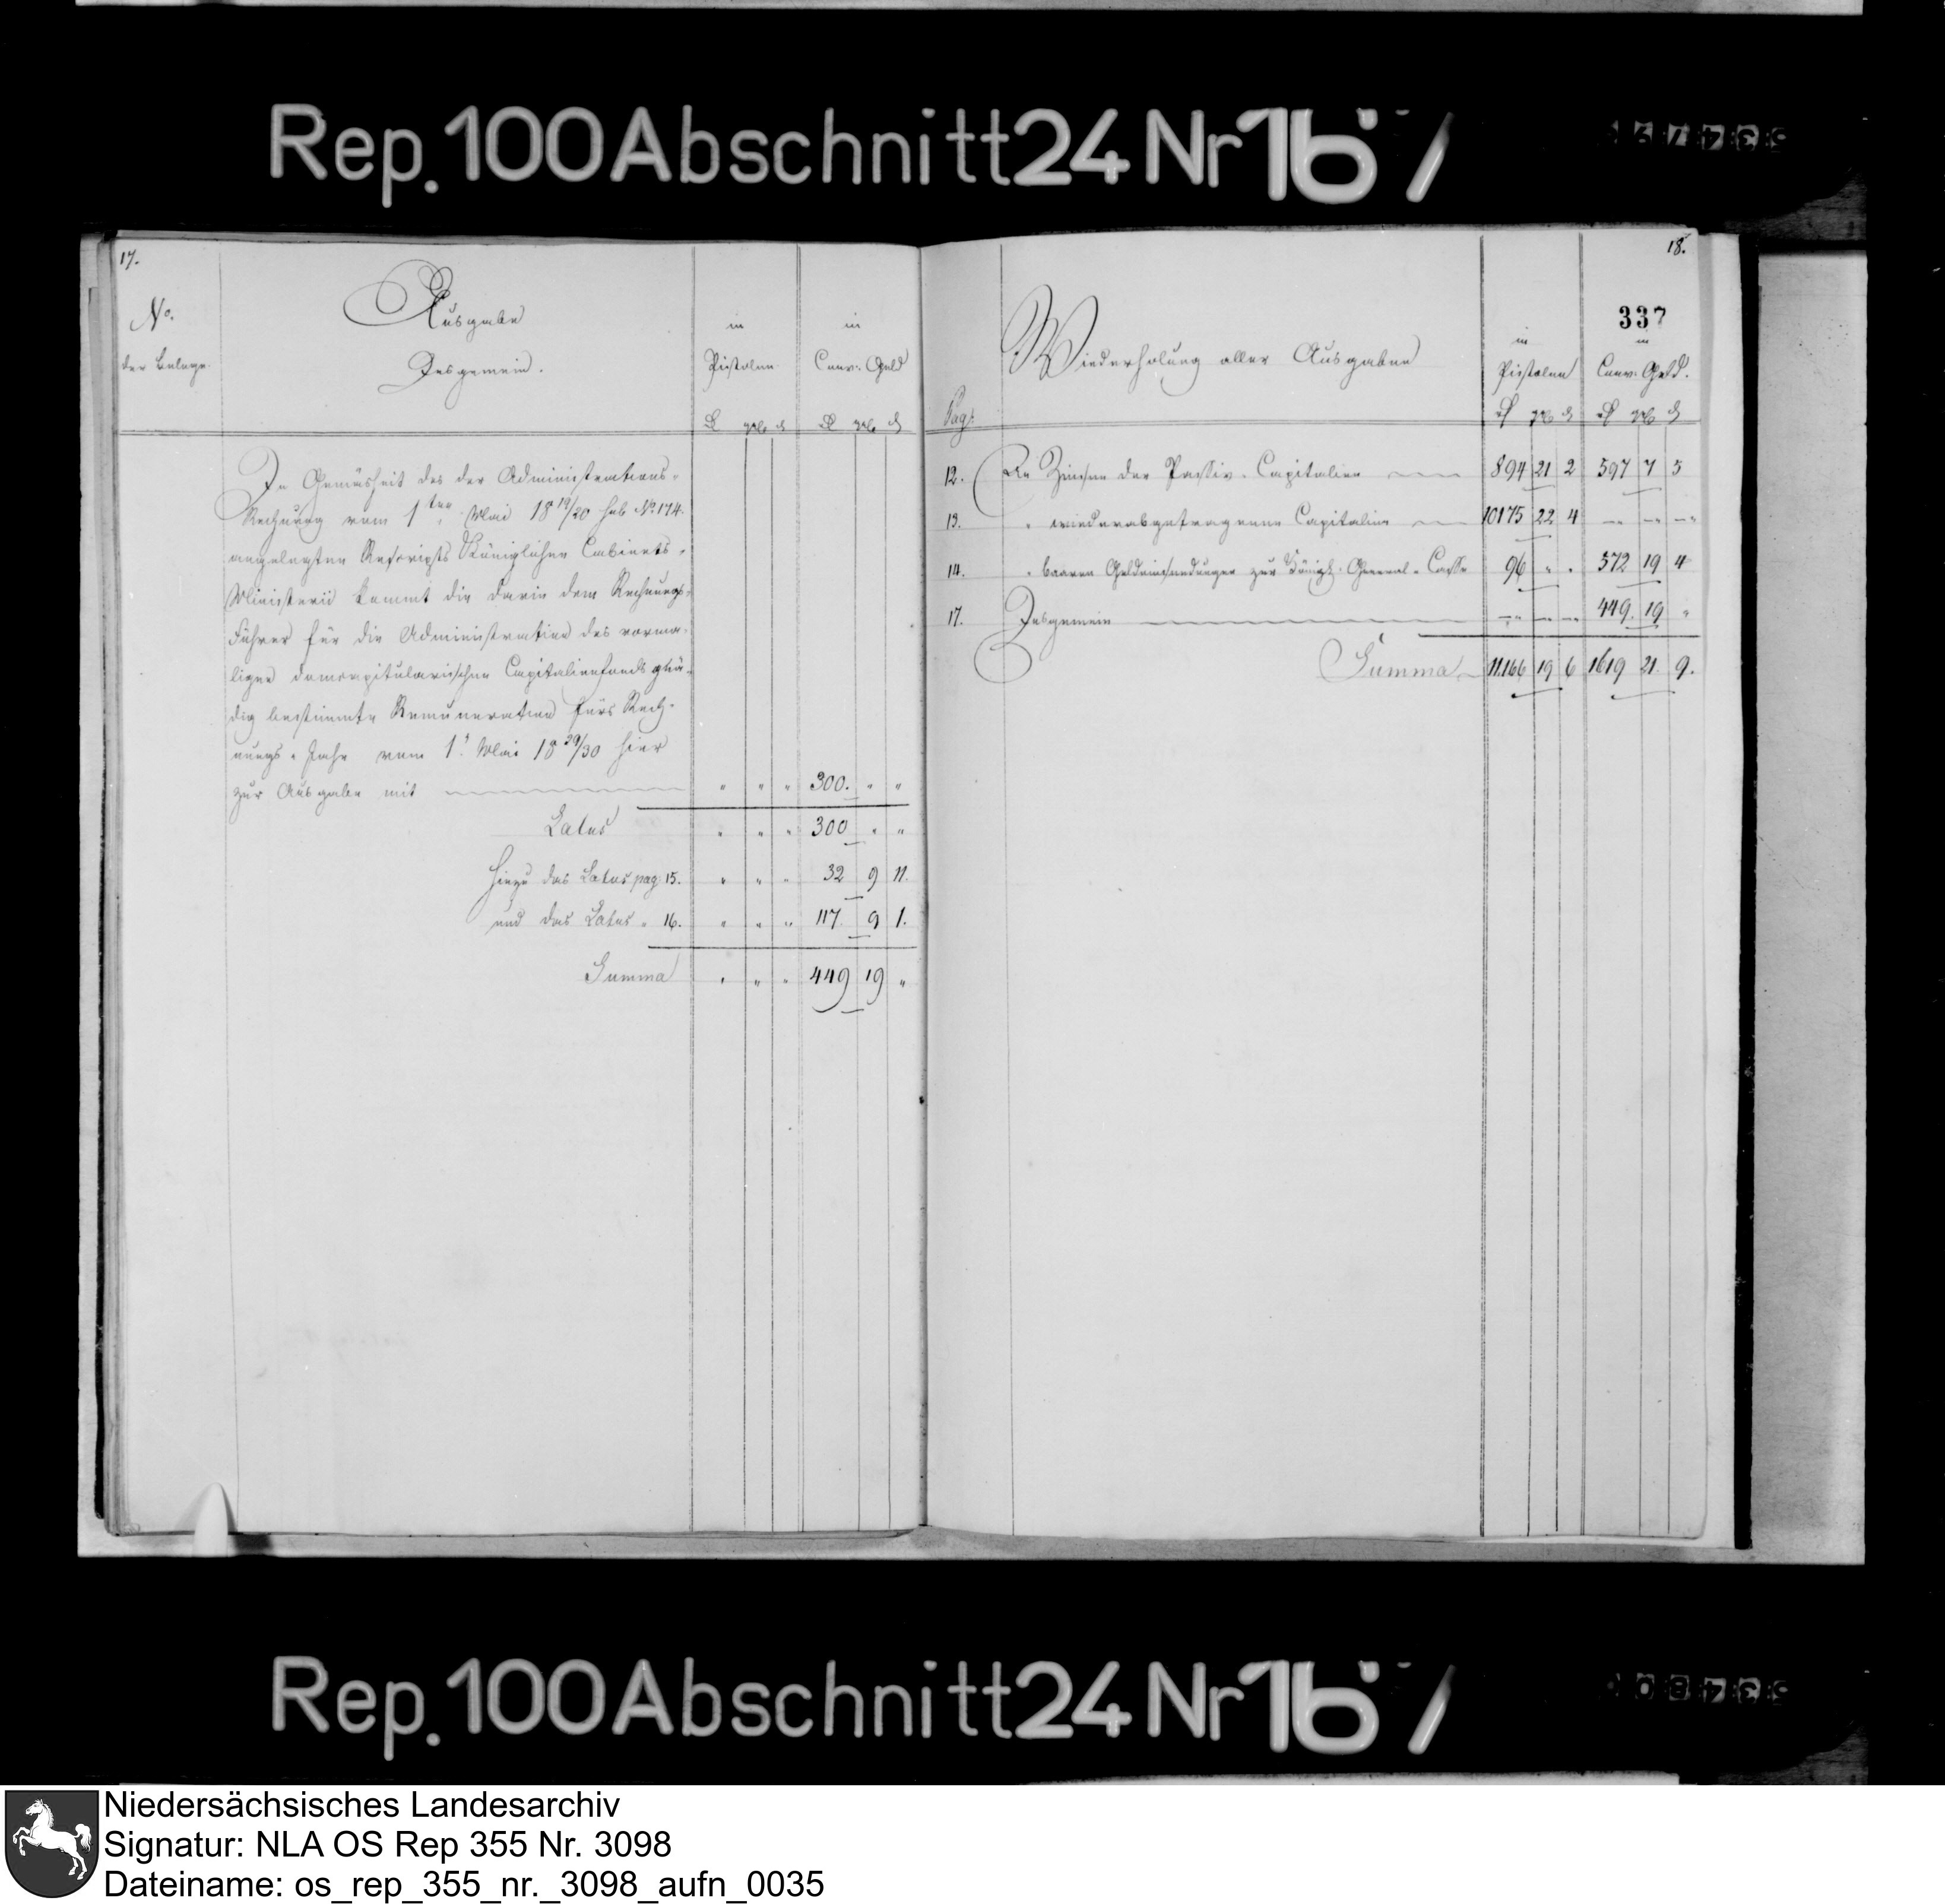 Rep. 100 Abschnitt 24 Nr 167
17.
No.
der Belege.
Ausgabe
Insgemein.
in
Pistolen
in
Conv: Geld
In Gemäsheit des der Administrations-
Rechnung vom 1ten Mai 18 19/20 sub No. 174.
angelegten Rescripts Königlichen Cabinets-
Ministerii kommt die darin dem Rechnungs-
Führer für die Administration des vorma-
ligen domcapitularischen Capitalienfonds gnä-
dig bestimmte Remuneration fürs Rech-
nungs-Jahr vom 1t Mai 18 29/30 hier
zur Ausgabe mit " " " 300. " "
Latus " " " 300 " "
Hiezu das Latus pag: 15. " " " 32 9 11.
und das Latus " 16. " " " 117. 9 1.
Summa " " " 449 19 "
18.
337
Wiederholung aller Ausgaben
in
Pistolen
in
Conv: Geld.
Pag:
12. An Zinsen der Passiv-Capitalien 894 21 2 597 7 5
13. " wiederabgetragenen Capitalien 10175 22 4 — — —
14. " baaren Geldeinsendungen zur Königl: General-Casse 96 " " 572 19 4
17. Insgemein — — — 449. 19 "
Summa 11.166 19 6 1619 21. 9.
Rep. 100 Abschnitt 24 Nr 167
Niedersächsisches Landesarchiv
Signatur: NLA OS Rep 355 Nr. 3098
Dateiname: os_rep_355_nr._3098_aufn_0035